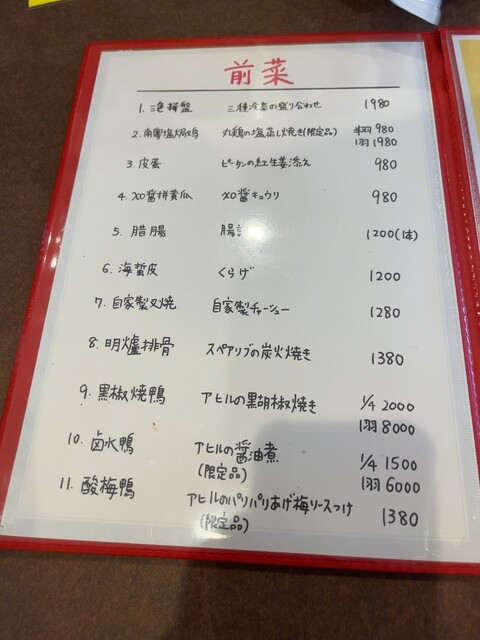 前菜
1. 三色拼盤 三種冷菜の盛り合わせ 1980
2. 南園塩焗鶏 丸鶏の塩蒸し焼き(限定品) 半羽 980
1羽 1980
3. 皮蛋 ピータンの紅生姜添え 980
4. XO醤拼黄瓜 XO醤キュウリ 980
5. 腊腸 腸 1200(本)
6. 海蜇皮 くらげ 1200
7. 自家製叉焼 自家製チャーシュー 1280
8. 明爐排骨 スペアリブの炭火焼き 1380
9. 黒椒焼鴨 アヒルの黒胡椒焼き 1/4 2000
1羽 8000
10. 卤水鴨 アヒルの醤油煮 1/4 1500
(限定品) 1羽 6000
11. 酸梅鴨 アヒルのパリパリあげ梅ソースつけ 1380
(限定品)